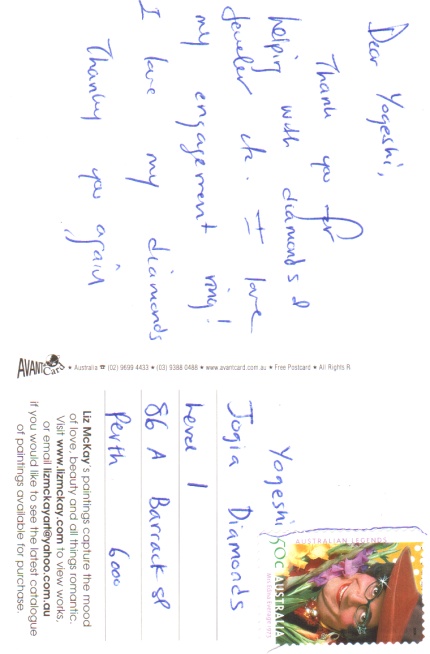 Dear Yogeshi,
Thank you for
helping with diamonds &
jeweler etc. I love
my engagement ring!
I love my diamonds
Thankyou you again
AVANT Card • Australia ☎ (02) 9699 4433 • (03) 9388 0488 • www.avantcard.com.au • Free Postcard • All Rights R
AUSTRALIAN LEGENDS
50C AUSTRALIA
Yogeshi
Jogia Diamonds
Level 1
86 A Barrack st
Perth 6000
Liz McKay's paintings capture the mood
of love, beauty and all things romantic.
Visit www.lizmckay.com to view works,
or email lizmckayart@yahoo.com.au
if you would like to see the latest catalogue
of paintings available for purchase.